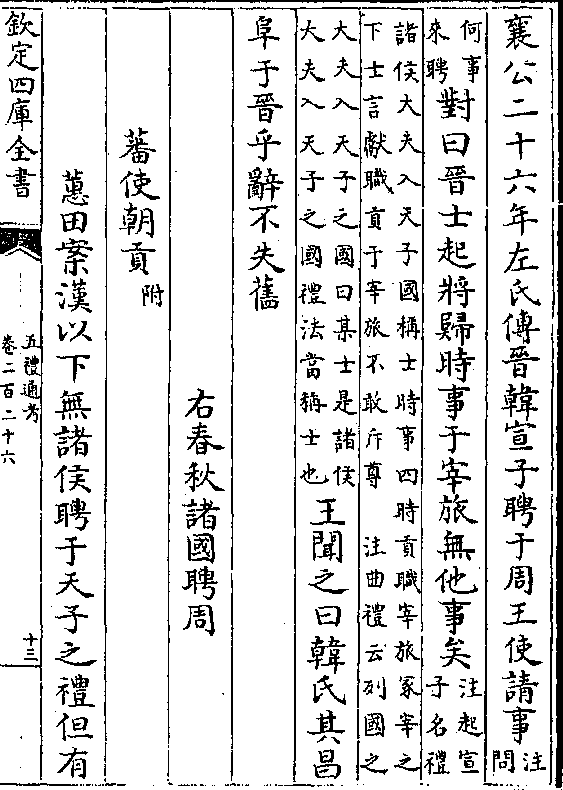 襄公二十六年左氏傳晉韓宣子聘于周王使請事注問
何事來聘對曰晉士起將歸時事于宰旅無他事矣注起宣子名禮
諸侯大夫入天子國稱士時事四時貢職宰旅冢宰之下士言獻職貢于宰旅不敢斥尊　注曲禮云列國之
大夫入天子之國曰某士是諸侯大夫入天子之國禮法當稱士也王聞之曰韓氏其昌
阜于晉乎辭不失舊
右春秋諸國聘周
蕃使朝貢附
蕙田案漢以下無諸侯聘于天子之禮但有
欽定四庫全書
五禮通考
卷二百二十六
十三